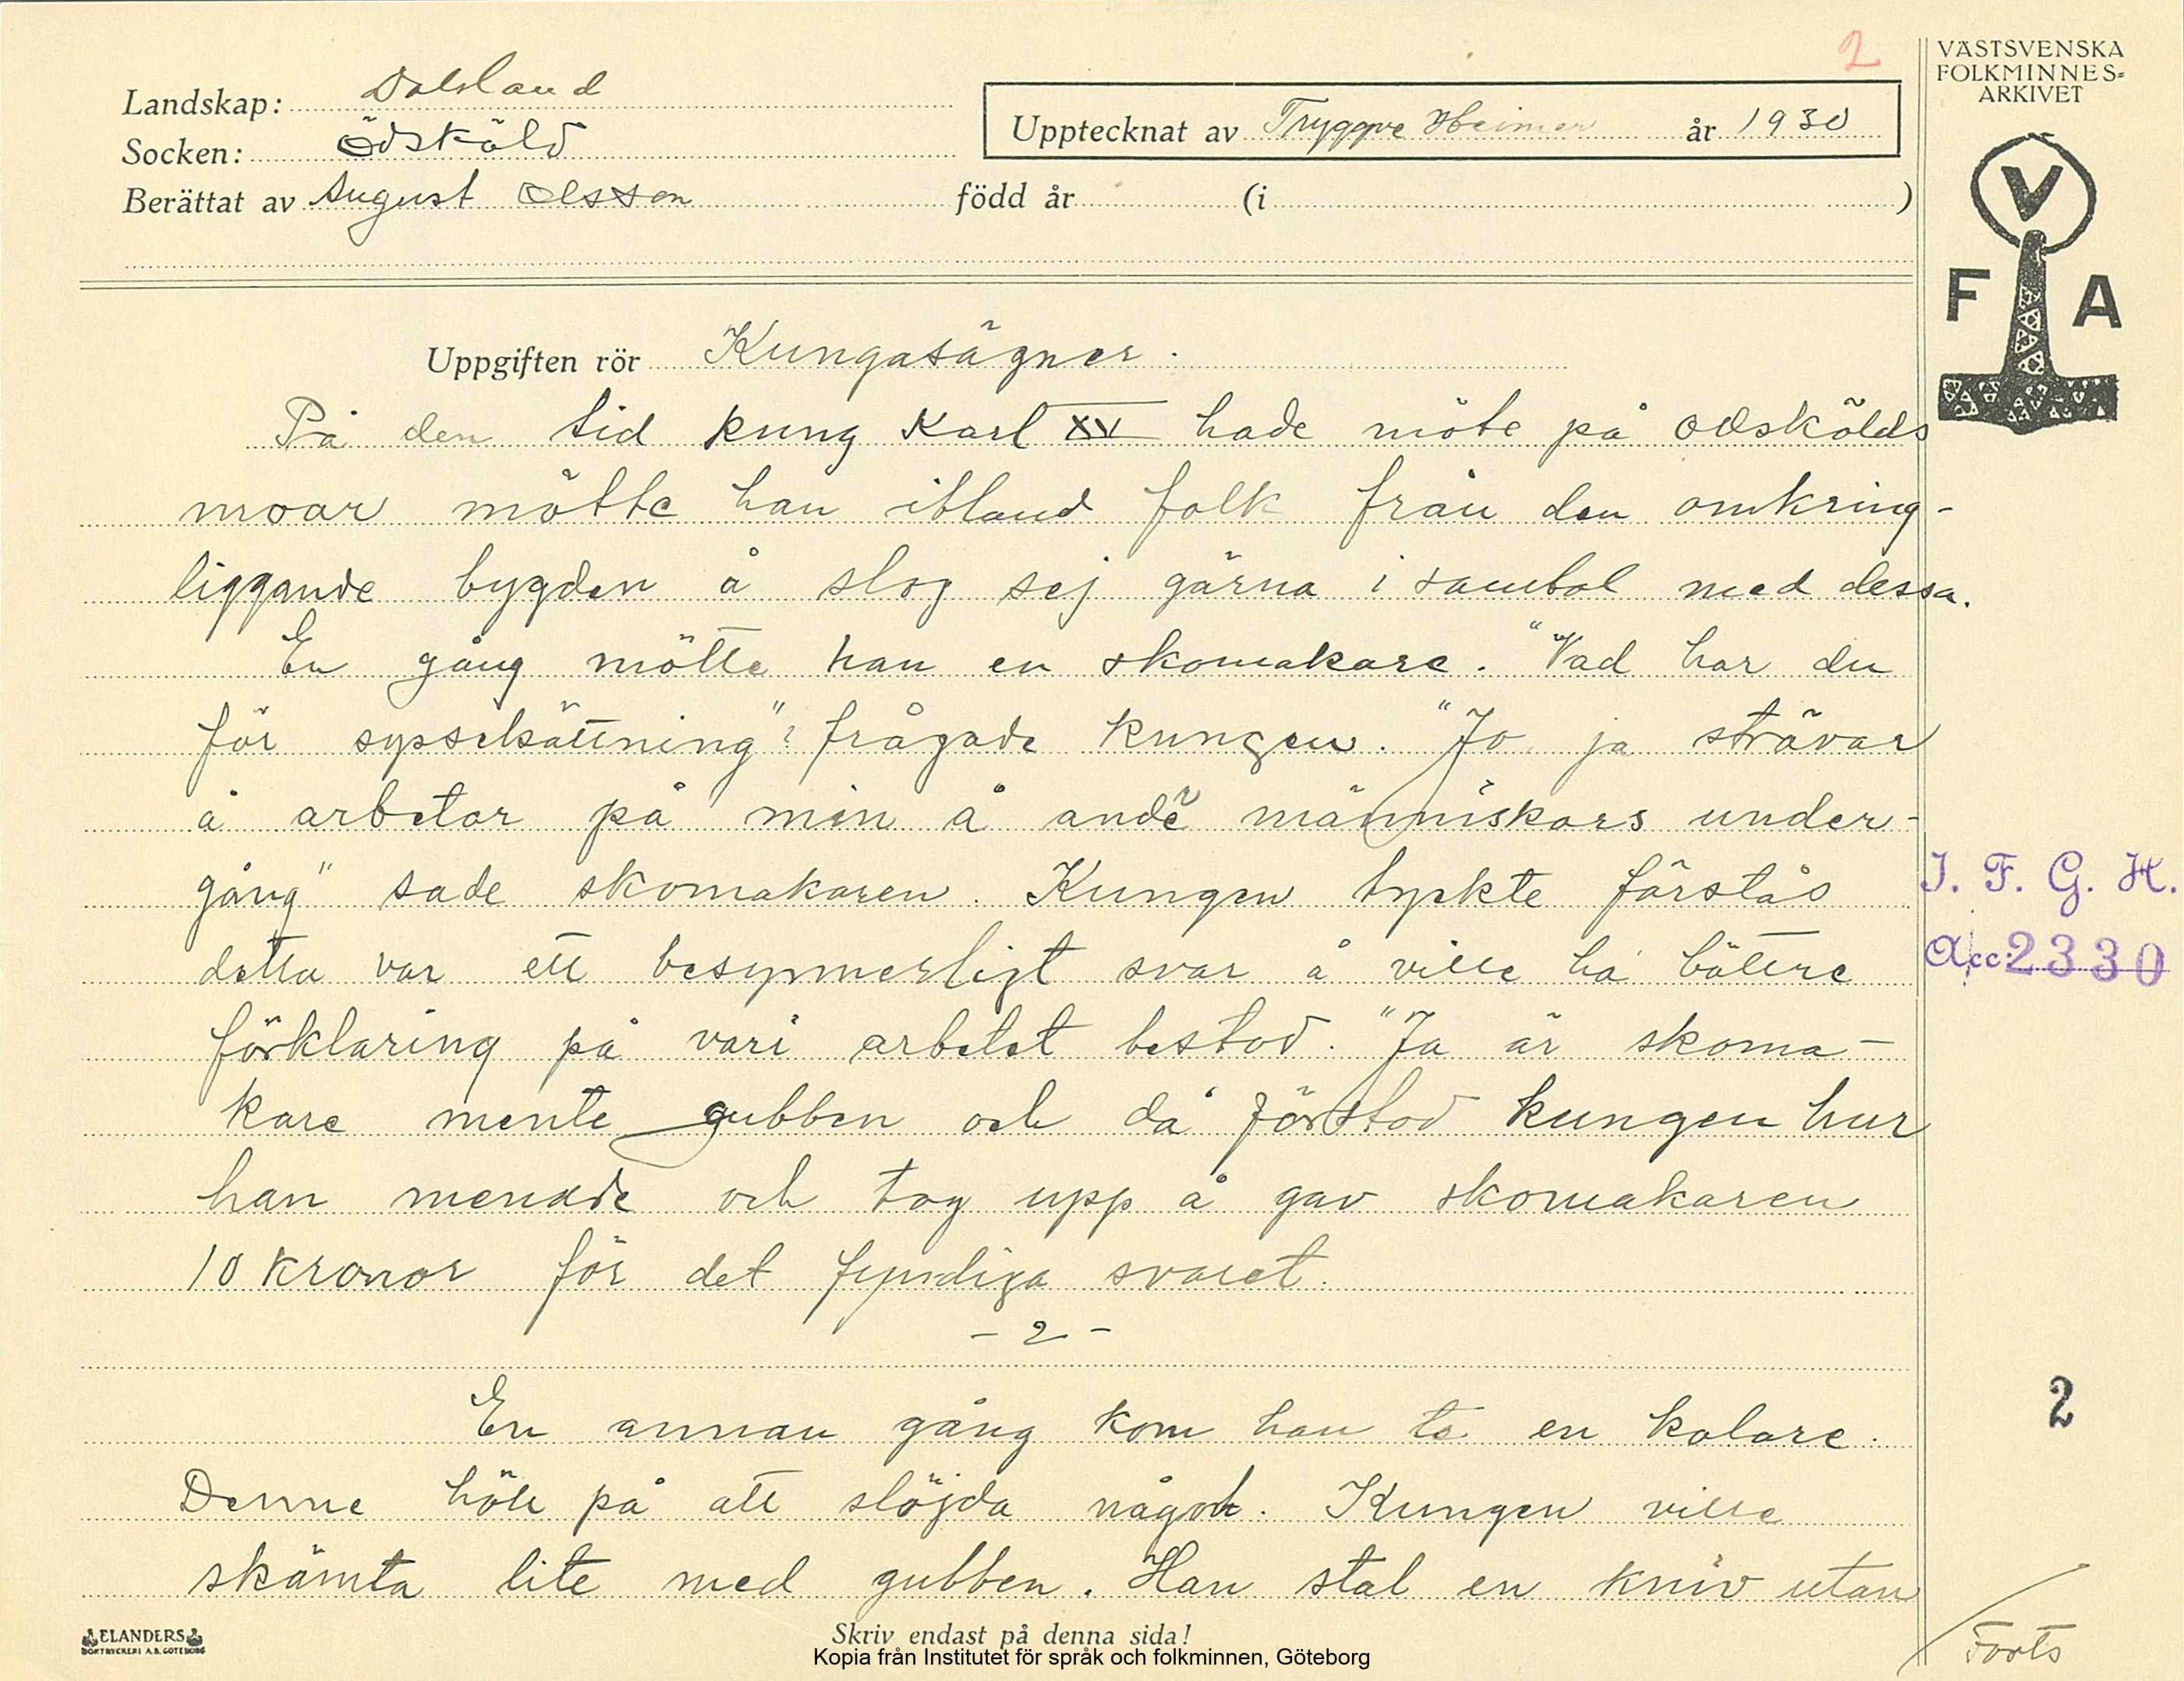 2
VÄSTSVENSKA
FOLKMINNES-
ARKIVET
V
F A
Landskap: Dalsland
Socken: Ödskôld
Berättat av August Olsson född år (i )
Upptecknat av Tryggve Heimer år 1930
Uppgiften rör Kungasägner.
På den tid kung Karl XV hade möte på Ödskölds
moar mötte han ibland folk från den omkring-
liggande bygden å slog sej gärna i samtal med dessa.
En gång mötte han en skomakare. "Vad har du
för sysselsättning"? frågade kungen. "Jo ja strävar
å arbetar på min å andes människors under-
gång" sade skomakaren. Kungen tyckte förstås
detta var ett besynnerligt svar å ville ha bättre
förklaring på vari arbetet bestod. "Ja är skoma-
kare mente gubben och då förstod kungen hur
han menade och tog upp å gav skomakaren
10 kronor för det fyndiga svaret.
- 2 -
En annan gång kom han te en kolare.
Denne höll på att slöjda något. Kungen ville
skämta lite med gubben. Han stal en kniv utan
I. F. G. H.
Acc: 2330
2
Forts
ELANDERS
BOKTRYCKERI A.B. GÖTEBORG
Skriv endast på denna sida!
Kopia från Institutet för språk och folkminnen, Göteborg